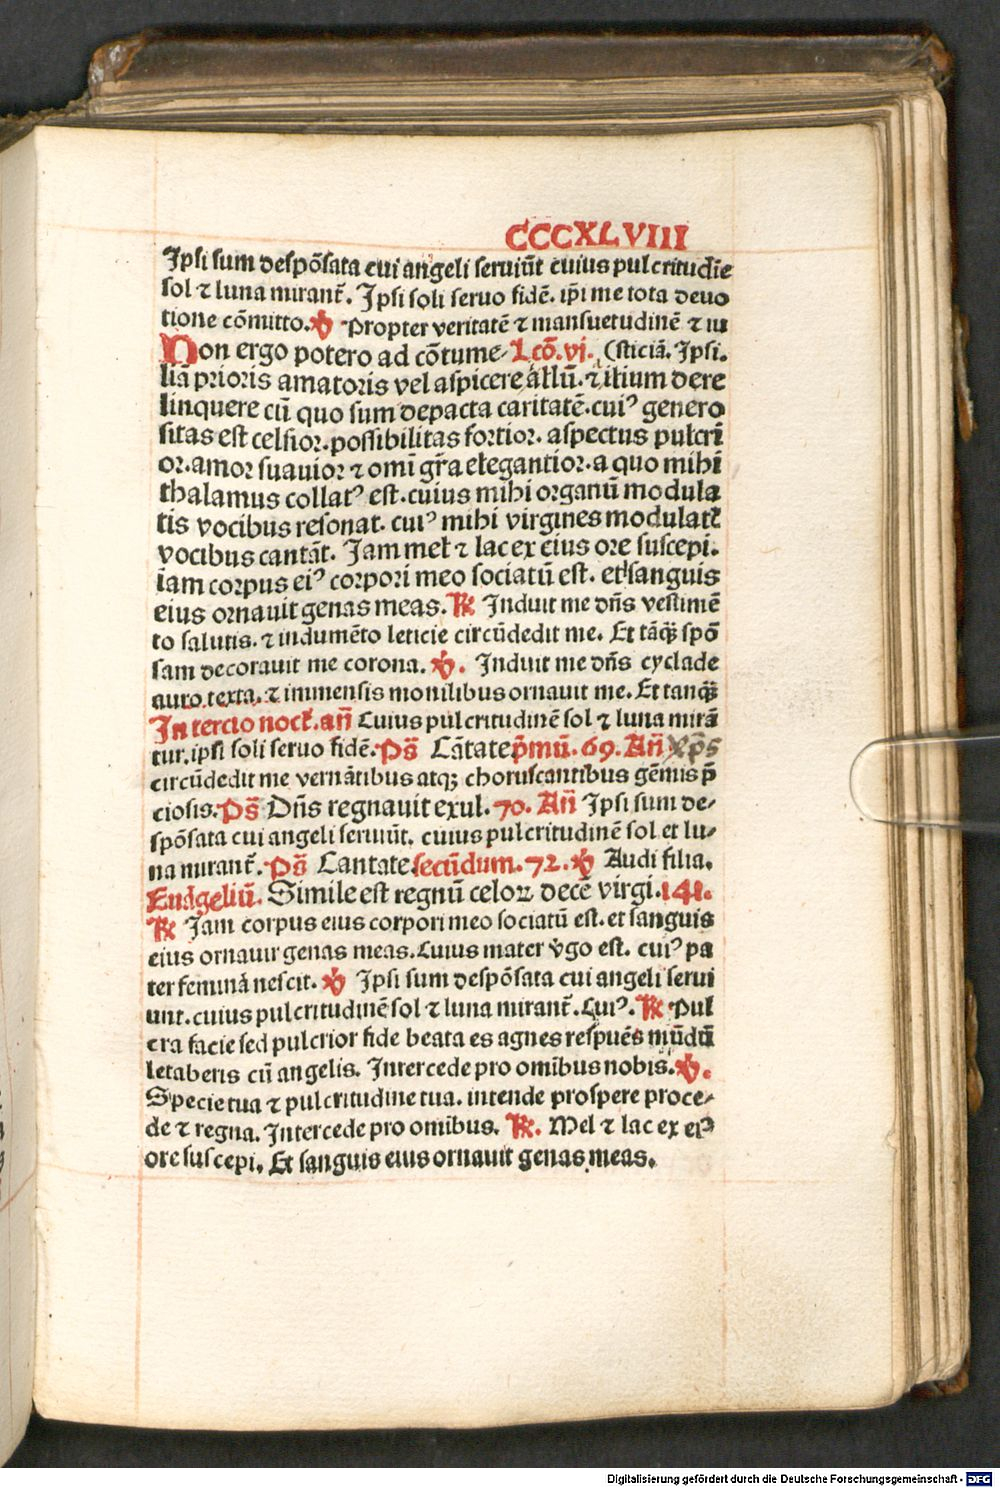 CCCXLVIII
Ipsi sum despōsata cui angeli seruiūt cuius pulcritudinē
sol ⁊ luna mirant̄. Ipsi soli seruo fidē. ip̄i me tota deuo
tione cōmitto. ℣ Propter veritatē ⁊ mansuetudinē ⁊ iu
Non ergo potero ad cōtume- Lcō.vj. (sticiā. Ipsi.
liā prioris amatoris vel aspicere alıū. ⁊ illum dere
linquere cū quo sum depacta caritatē. cuiꝰ genero
sitas est celsior. possibilitas fortior. aspectus pulcri
or. amor suauior ⁊ omī gr̄a elegantior. a quo mihi
thalamus collatꝰ est. cuius mihi organū modula
tis vocibus resonat. cuiꝰ mihi virgines modulat̄
vocibus cantāt. Jam mel ⁊ lac ex eius ore suscepi.
iam corpus eiꝰ corpori meo sociatū est. et sanguis
eius ornauit genas meas. ℟ Induit me dn̄s vestimē
to salutis. ⁊ indumēto leticie circūdedit me. Et tāqꝫ spō
sam decorauit me corona. ℣. Induit me dn̄s cyclade
auro texta. ⁊ immensis monilibus ornauit me. Et tanqꝫ
In tercio noct̄. an̄ Cuius pulcritudinē sol ⁊ luna mirā
tur. ipsi soli seruo fidē. Ps̄ Cātate p̄mū. 69. An̄ Xp̄s
circūdedit me vernātibus atqꝫ choruscantibus gēmis p̄
ciosis. Ps̄ Dn̄s regnauit exul. 70. An̄ Ipsi sum de-
spōsata cui angeli seruiūt. cuius pulcritudinē sol et lu-
na mirant̄. Ps̄ Cantate secūdum. 72. ℣ Audi filia.
Euāgeliū. Simile est regnū celoꝝ decē virgi. 141.
℟ Jam corpus eius corpori meo sociatū est. et sanguis
eius ornauit genas meas. Cuius mater v̄go est. cuiꝰ pa
ter feminā nescit. ℣ Ipsi sum despōsata cui angeli serui
unt. cuius pulcritudinē sol ⁊ luna mirant̄. Cuiꝰ. ℟ Pul
cra facie sed pulcrior fide beata es agnes respuēs mūdū
letaberis cū angelis. Intercede pro omībus nobis. ℣.
Specie tua ⁊ pulcritudine tua. intende prospere proce-
de ⁊ regna. Intercede pro omībus. ℟. Mel ⁊ lac ex eiꝰ
ore suscepi. Et sanguis eius ornauit genas meas.
Digitalisierung gefördert durch die Deutsche Forschungsgemeinschaft - DFG